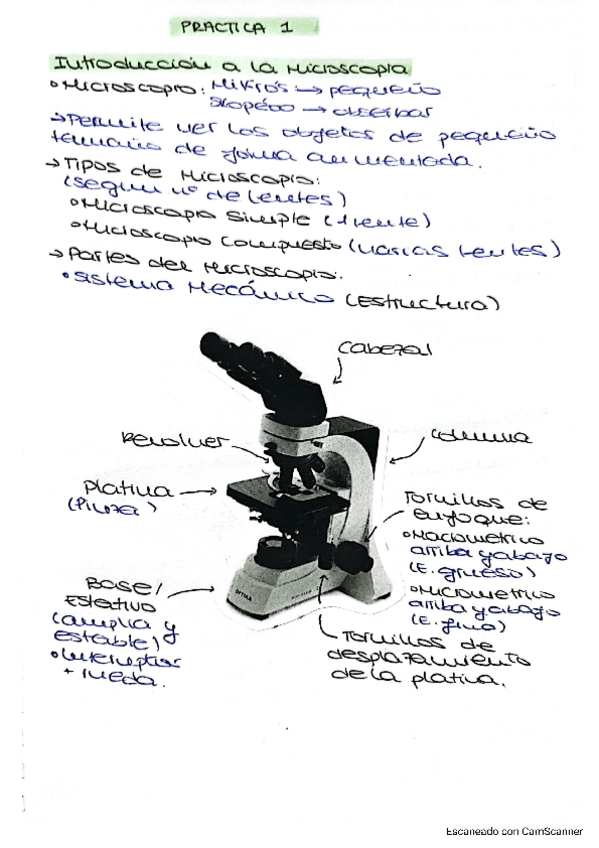 PRACTICA 1
Introducción a la Microscopía
• Microscopio: Mikrós → pequeño
skopéoo → observar
→ Permite ver los objetos de pequeño
tamaño de forma aumentada.
→ Tipos de Microscopio:
(según nº de lentes)
• Microscopio Simple (1 lente)
• Microscopio compuesto (varias lentes)
→ Partes del Microscopio:
• Sistema Mecánico (Estructura)
Cabezal
Revolver
Columna
Platina
(Pinza)
Tornillos de
enfoque:
• Macrometrico
arriba y abajo
(E. grueso)
• Micrometrico
arriba y abajo
(E. fino)
Base/
Estativo
(amplia y
estable)
• Interruptor
+ rueda.
Tornillos de
desplazamiento
de la platina.
OPTIKA
Escaneado con CamScanner